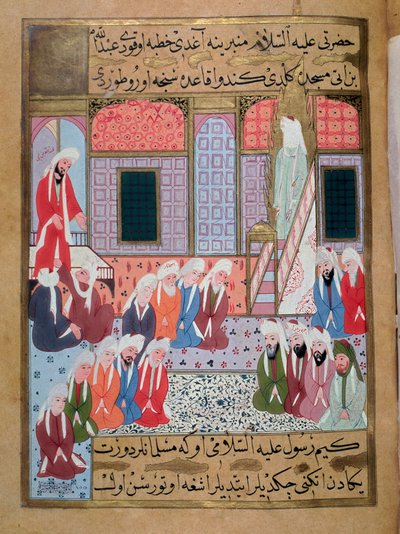 حضرتی علیه السلام منبرینه آغدی خطبه اوقودی عبدالله
بن ابی مسجده کلدی کندو قاعده سنجه اورو طوردی
کیم رسول علیه السلامی اوکه مسلمانلر دورت
یکادن اتکنی چکدیلر ایتدیلر اشغه اوتور سن اول